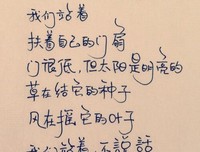 我们站着
扶着自己的门扇
门很低,但太阳是明亮的
草在结它的种子
风在摇它的叶子
我们站着,不说話